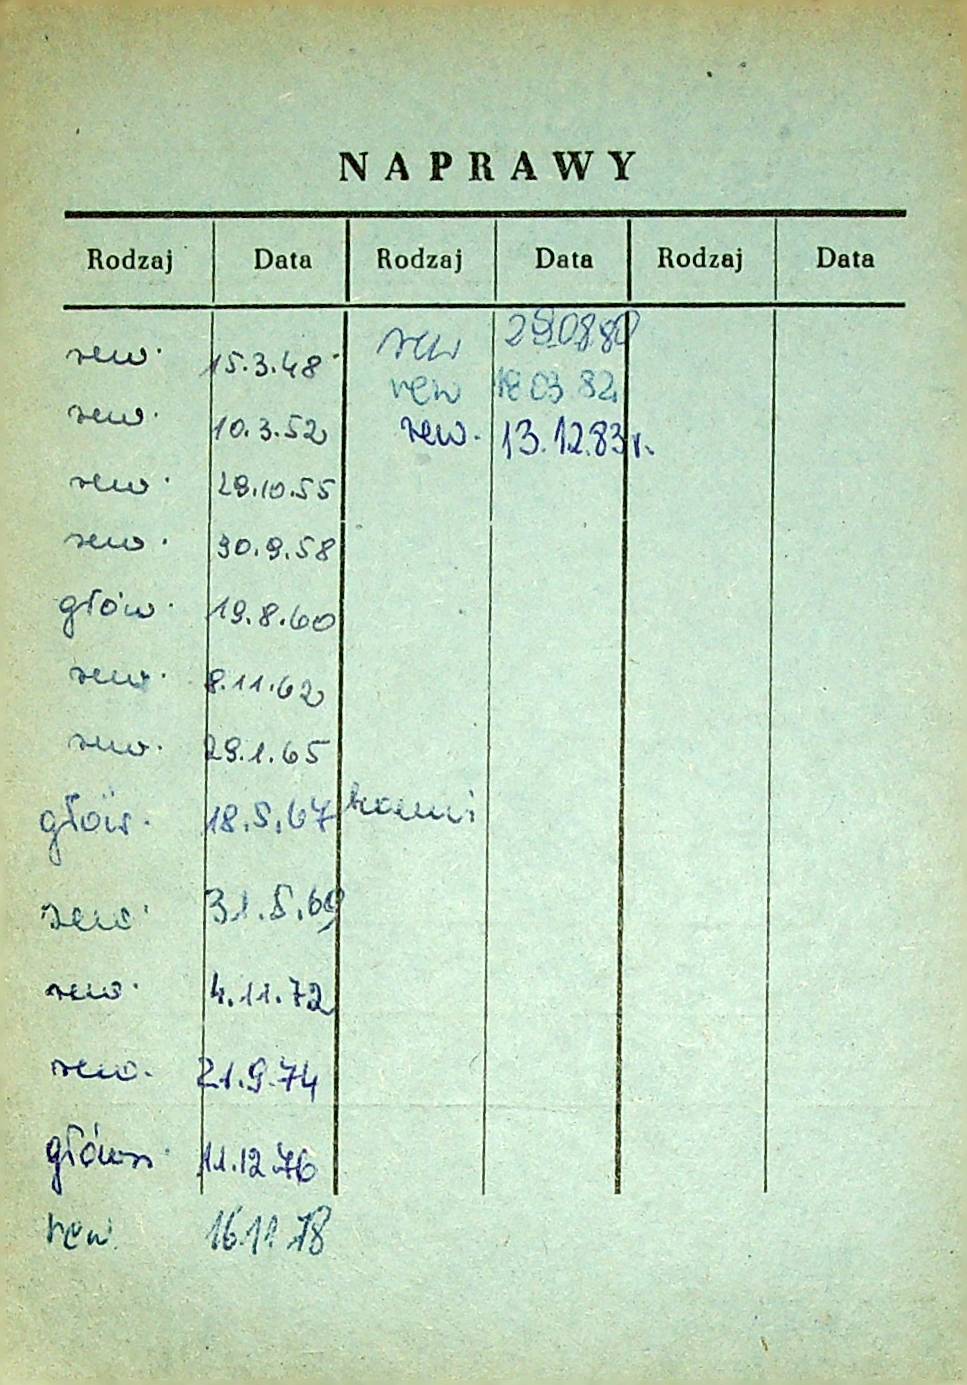 NAPRAWY
Rodzaj Data Rodzaj Data Rodzaj Data
rew. 15.3.48 rew 29.08.80
rew. 10.3.52 rew 18 03 82
rew. 29.10.55 rew. 13.12.83r.
rew. 30.9.58
głów. 19.8.60
rew. 8.11.62
rew. 29.1.65
głów. 18.5.67
rew. 31.5.69
rew. 4.11.72
rew. 21.9.74
główn. 11.12.76
rew 16 11 78